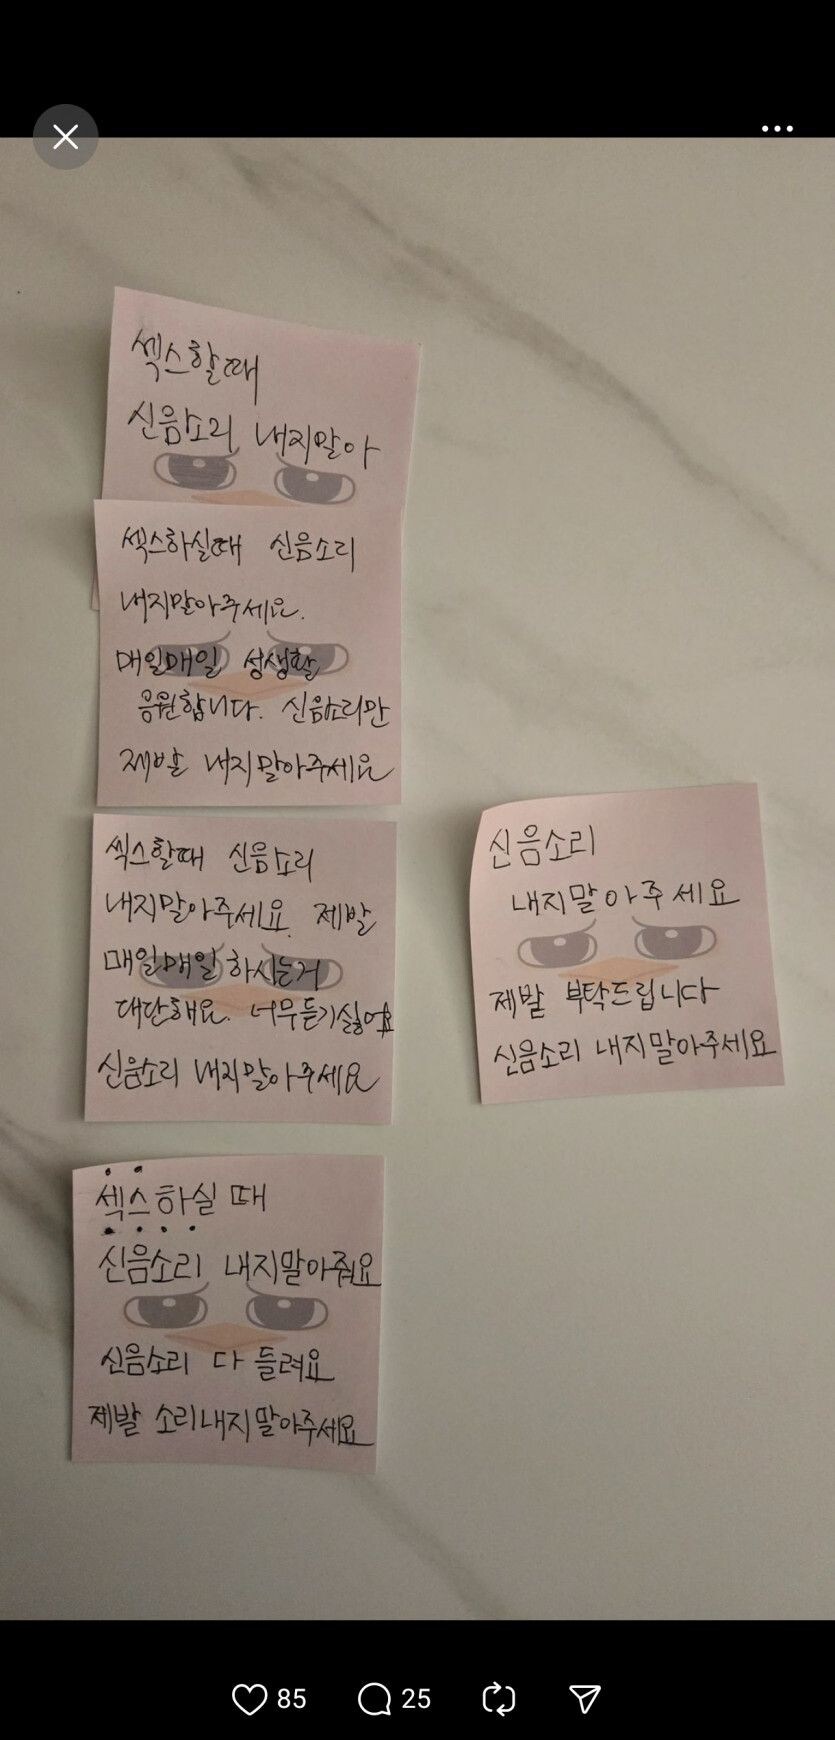 섹스할때
신음소리 내지말아
섹스하실때 신음소리
내지말아주세요.
매일매일 성생활
응원합니다. 신음소리만
제발 내지말아주세요
섹스할때 신음소리
내지말아주세요. 제발
매일매일 하시는거
대단해요. 너무듣기싫어요
신음소리 내지말아주세요
신음소리
내지말아주세요
제발 부탁드립니다
신음소리 내지말아주세요
섹스하실 때
신음소리 내지말아줘요
신음소리 다 들려요
제발 소리내지말아주세요
85 25